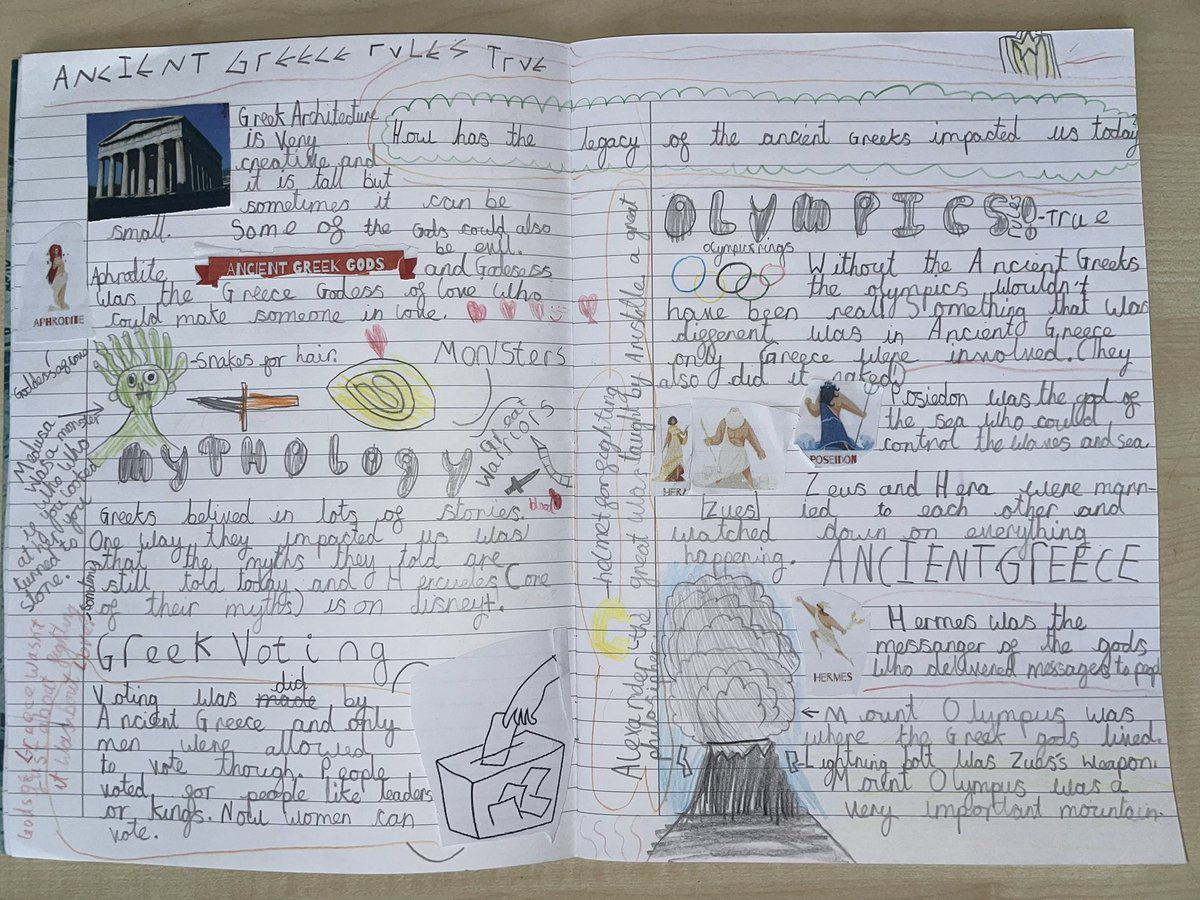 ANCIENT GREECE rules True
How has the legacy of the ancient Greeks impacted us today?
Greek Architecture
is very
creative and
it is tall but
sometimes it can be
small. Some of the Gods could also
be evil.
Aphrodite ANCIENT GREEK GODS and Godesess
was the Greece Godess of love who
could make someone in love.
APHRODITE
Goddess of love
-snakes for hair.
MONSTERS
Great
Warriors
blood
Medusa
was a monster
who
if you looked
at her
turned you to
stone.
MYTHOLOGY
Greeks belived in lots of stories.
One way they impacted us was
that the myths they told are
still told today and Hercules (one
of their myths) is on disney+.
Greek Voting
did
Voting was made by
Ancient Greece and only
men were allowed
to vote though. People
voted for people like leaders
or kings. Now women can
vote.
-helmet for fighting
Alexander the great was taught by Aristotle a great
philosipher
OLYMPICS!-True
olympics rings
Without the Ancient Greeks
the olympics wouldn't
have been real. Something that was
different was in Ancient Greece
only Greece were involved. (They
also did it naked)
Posiedon was the god of
the sea who could
control the waves and sea.
POSEIDON
HERA
Zues
Zeus and Hera were marr-
ied to each other and
watched down on everything
happening.
ANCIENT GREECE
Hermes was the
messanger of the gods
who delivered messages to
HERMES
Mount Olympus was
where the Greek gods lived.
-Lightning bolt was Zues's weapon.
Mount Olympus was a
very important mountain.